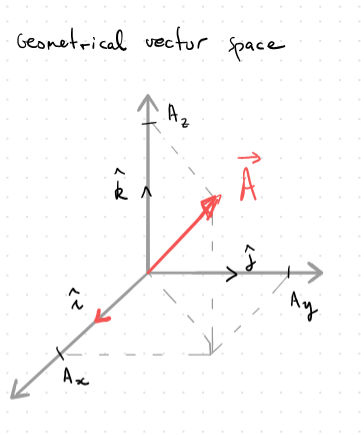 Geometrical vector space
A_z
k̂
A⃗
ĵ
î
A_y
A_x